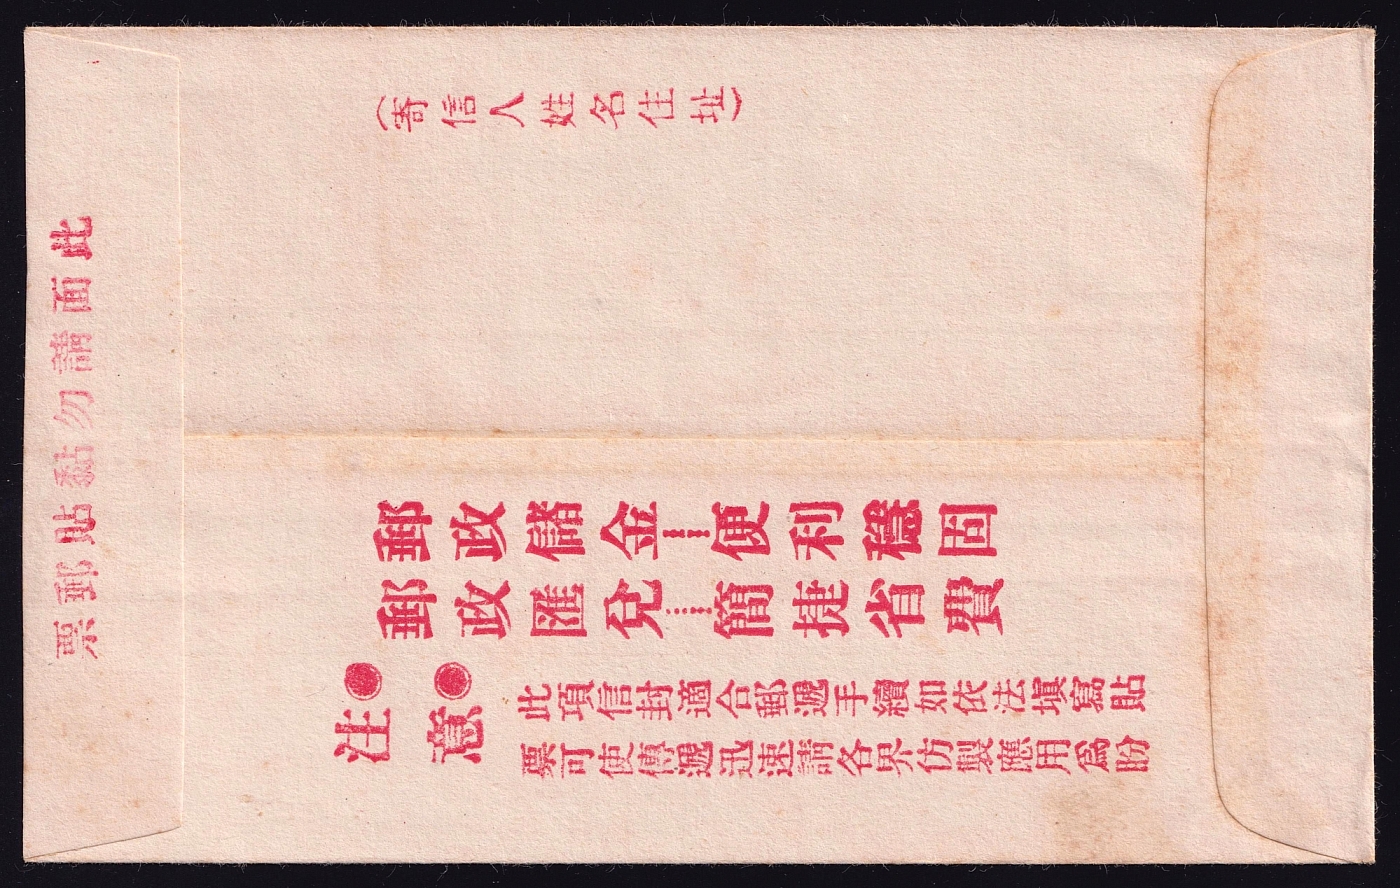 此面請勿黏貼郵票
（寄信人姓名住址）
郵政儲金……便利穩固
郵政匯兌……簡捷省費
●●
注意
此項信封適合郵遞手續如依法填寫貼
票可使傳遞迅速請各界仿製應用爲盼